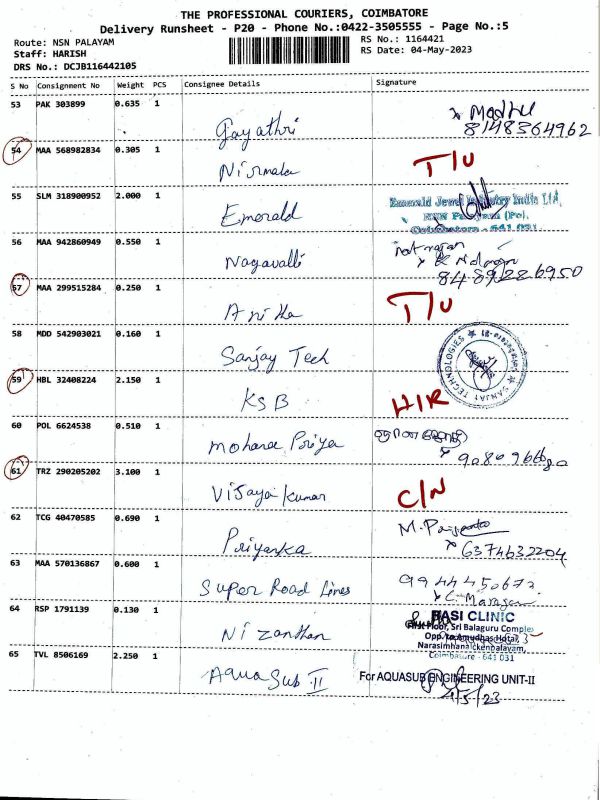 THE PROFESSIONAL COURIERS, COIMBATORE
Delivery Runsheet - P20 - Phone No.:0422-3505555 - Page No.:5
Route: NSN PALAYAM
RS No.: 1164421
Staff: HARISH
RS Date: 04-May-2023
DRS No.: DCJB116442105
S No Consignment No Weight PCS Consignee Details Signature
53 PAK 303899 0.635 1 Gayathri x Madhu
8148364962
54 MAA 568982834 0.305 1 Nirmala T/U
55 SLM 318900952 2.000 1 Emerald Emerald Jewel Industry India Ltd,
NSN Palayam (Po),
Coimbatore - 641 031
56 MAA 942860949 0.550 1 Nagavalli
57 MAA 299515284 0.250 1 Anitha T/U
58 MDD 542903021 0.160 1 Sanjay Tech SANJAY TECHNOLOGIES
59 HBL 32408224 2.150 1 KSB H/R
60 POL 6624538 0.510 1 Mohana Priya
61 TRZ 290205202 3.100 1 Vijaya kumar C/N
62 TCG 40470585 0.690 1 Priyanka M. Priyanka
x 6374632204
63 MAA 570136867 0.600 1 Super Road Lines
64 RSP 1791139 0.130 1 Nizanthan HASI CLINIC
First Floor, Sri Balaguru Complex
Opp. to Amudhas Hotel,
Narasimhanaickenpalayam,
Coimbatore - 641 031
65 TVL 8506169 2.250 1 Aqua Sub II For AQUASUB ENGINEERING UNIT-II
4/5/23